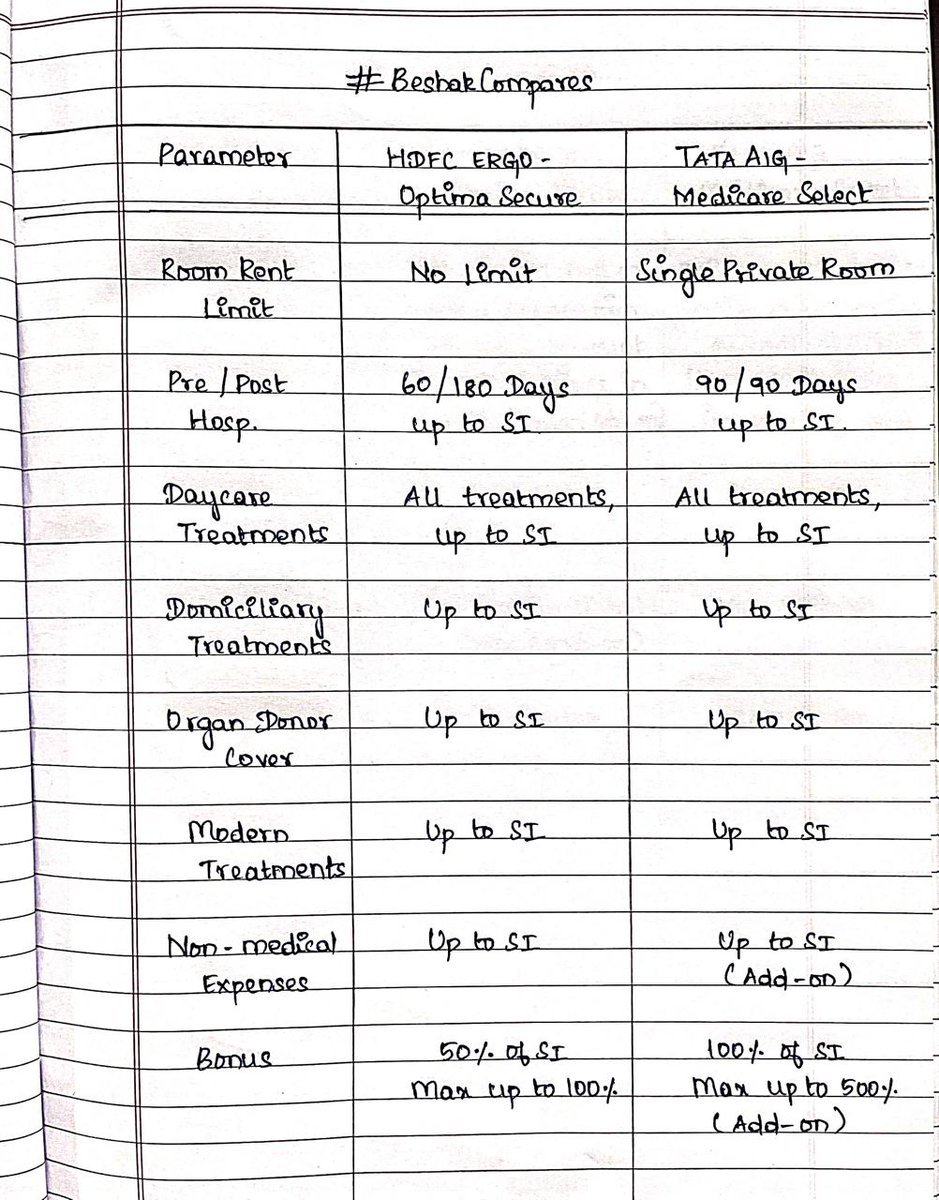 #BeshakCompares
Parameter HDFC ERGO - TATA AIG -
Optima Secure Medicare Select
Room Rent No Limit Single Private Room
Limit
Pre / Post 60/180 Days 90/90 Days
Hosp. up to SI up to SI.
Daycare All treatments, All treatments,
Treatments up to SI up to SI
Domiciliary Up to SI Up to SI
Treatments
Organ Donor Up to SI Up to SI
Cover
Modern Up to SI Up to SI
Treatments
Non-medical Up to SI Up to SI
Expenses (Add-on)
Bonus 50% of SI 100% of SI
Max up to 100% Max up to 500%
(Add-on)